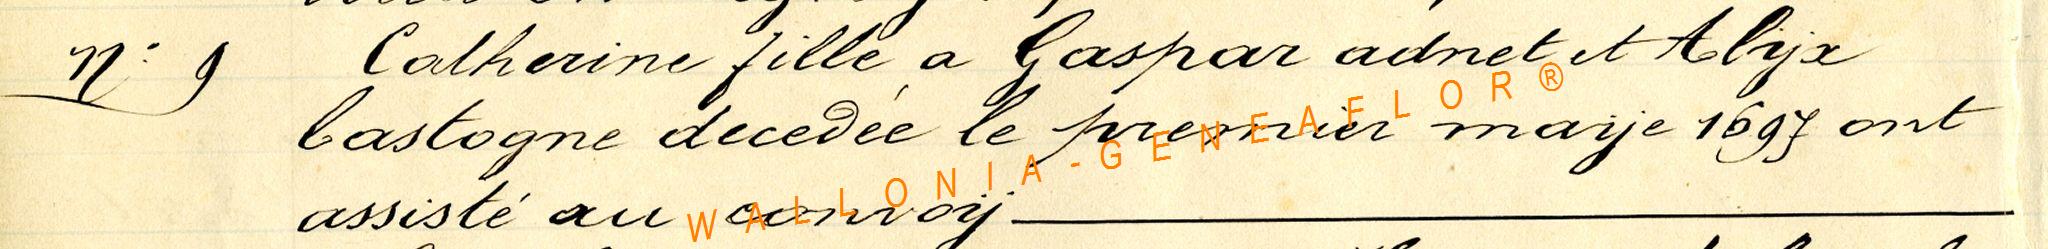 N° 9 Catherine fille a Gaspar adnet et Alijx
bastogne decedée le premier maije 1697 ont
assisté au convoij
WALLONIA-GENEAFLOR®